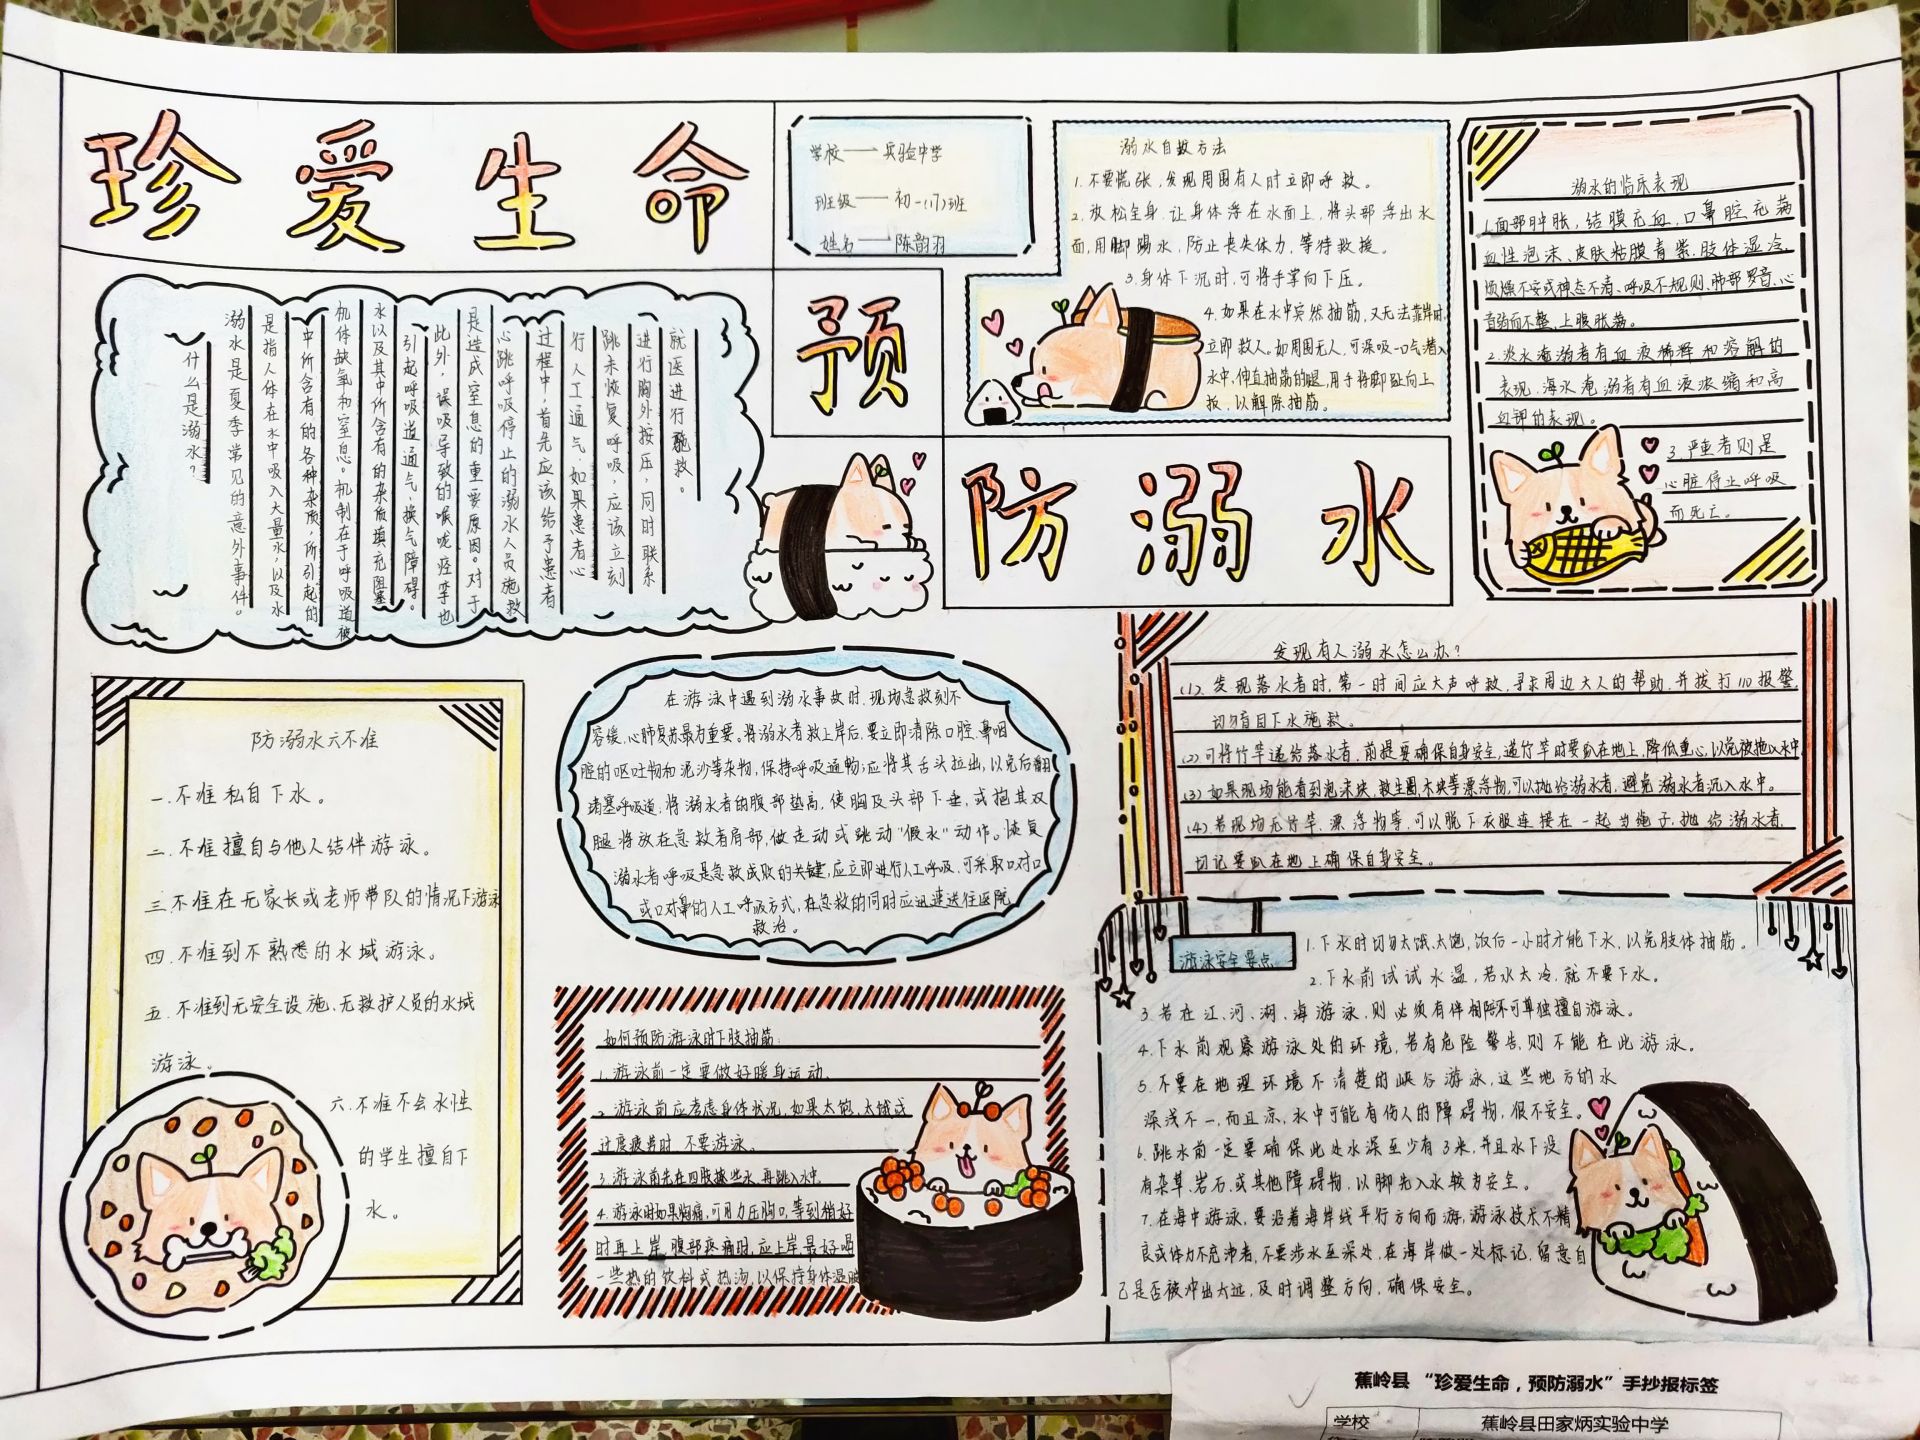 珍爱生命
预
防溺水
学校——实验中学
班级——初一(17)班
姓名——陈韵羽
溺水自救方法
1.不要慌张,发现周围有人时立即呼救。
2.放松全身,让身体浮在水面上,将头部浮出水
面,用脚踢水,防止丧失体力,等待救援。
3.身体下沉时,可将手掌向下压。
4.如果在水中突然抽筋,又无法靠岸时,
立即救人。如周围无人,可深吸一口气潜入
水中,伸直抽筋的腿,用手将脚趾向上
扳,以解除抽筋。
溺水的临床表现
1.面部肿胀,结膜充血,口鼻腔充满
血性泡沫、皮肤粘膜青紫,肢体湿冷,
烦燥不安或神态不清、呼吸不规则、肺部罗音、心
音弱而不整,上腹胀满。
2.淡水淹溺者有血液稀释和溶解的
表现,海水淹溺者有血液浓缩和高
血钾的表现。
3.严重者则是
心脏停止呼吸
而死亡。
什么是溺水?
溺水是夏季常见的意外事件。
是指人体在水中吸入大量水,以及水
中所含有的各种杂质,所引起的
机体缺氧和窒息。机制在于呼吸道被
水以及其中所含有的杂质填充阻塞
引起呼吸道通气,换气障碍。
此外,误吸导致的喉咙痉挛也
是造成窒息的重要原因。对于
心跳呼吸停止的溺水人员施救
过程中,首先应该给予患者
行人工通气,如果患者心
跳未恢复呼吸,应该立刻
进行胸外按压,同时联系
就医进行施救。
防溺水六不准
一.不准私自下水。
二.不准擅自与他人结伴游泳。
三.不准在无家长或老师带队的情况下游泳
四.不准到不熟悉的水域游泳。
五.不准到无安全设施、无救护人员的水域
游泳。
六.不准不会水性
的学生擅自下
水。
在游泳中遇到溺水事故时,现场急救刻不
容缓,心肺复苏最为重要。将溺水者救上岸后,要立即清除口腔、鼻咽
腔的呕吐物和泥沙等杂物,保持呼吸通畅;应将其舌头拉出,以免后翻
堵塞呼吸道;将溺水者的腹部垫高,使胸及头部下垂,或抱其双
腿将放在急救者肩部,做走动或跳动“假水”动作。恢复
溺水者呼吸是急救成败的关键,应立即进行人工呼吸,可采取口对口
或口对鼻的人工呼吸方式,在急救的同时应迅速送往医院
救治。
发现有人溺水怎么办?
(1)发现落水者时,第一时间应大声呼救,寻求周边大人的帮助,并拨打110报警,
切勿盲目下水施救。
(2)可将竹竿递给落水者,前提要确保自身安全,递竹竿时要趴在地上,降低重心,以免被拖入水中
(3)如果现场能看到泡沫块、救生圈木块等漂浮物,可以抛给溺水者,避免溺水者沉入水中。
(4)若现场无竹竿、漂浮物等,可以脱下衣服连接在一起当绳子,抛给溺水者,
切记要趴在地上确保自身安全。
如何预防游泳时下肢抽筋:
1.游泳前一定要做好暖身运动.
2.游泳前应考虑身体状况,如果太饱、太饿或
过度疲劳时,不要游泳。
3.游泳前先在四肢撩些水,再跳入水中.
4.游泳时如果胸痛,可用力压胸口,等到稍好
时再上岸,腹部疼痛时,应上岸,最好喝
一些热的饮料或热汤,以保持身体温暖
游泳安全要点
1.下水时切勿太饿、太饱,饭后一小时才能下水,以免肢体抽筋。
2.下水前试试水温,若水太冷,就不要下水。
3.若在江、河、湖、海游泳,则必须有伴相陪不可单独擅自游泳。
4.下水前观察游泳处的环境,若有危险警告,则不能在此游泳。
5.不要在地理环境不清楚的峡谷游泳,这些地方的水
深浅不一,而且凉,水中可能有伤人的障碍物,很不安全。
6.跳水前一定要确保此处水深至少有3米,并且水下没
有杂草、岩石、或其他障碍物,以脚先入水较为安全。
7.在海中游泳,要沿着海岸线平行方向而游,游泳技术不精
良或体力不充沛者,不要涉水至深处,在海岸做一处标记,留意自
己是否被冲出太远,及时调整方向,确保安全。
蕉岭县“珍爱生命,预防溺水”手抄报标签
学校 蕉岭县田家炳实验中学